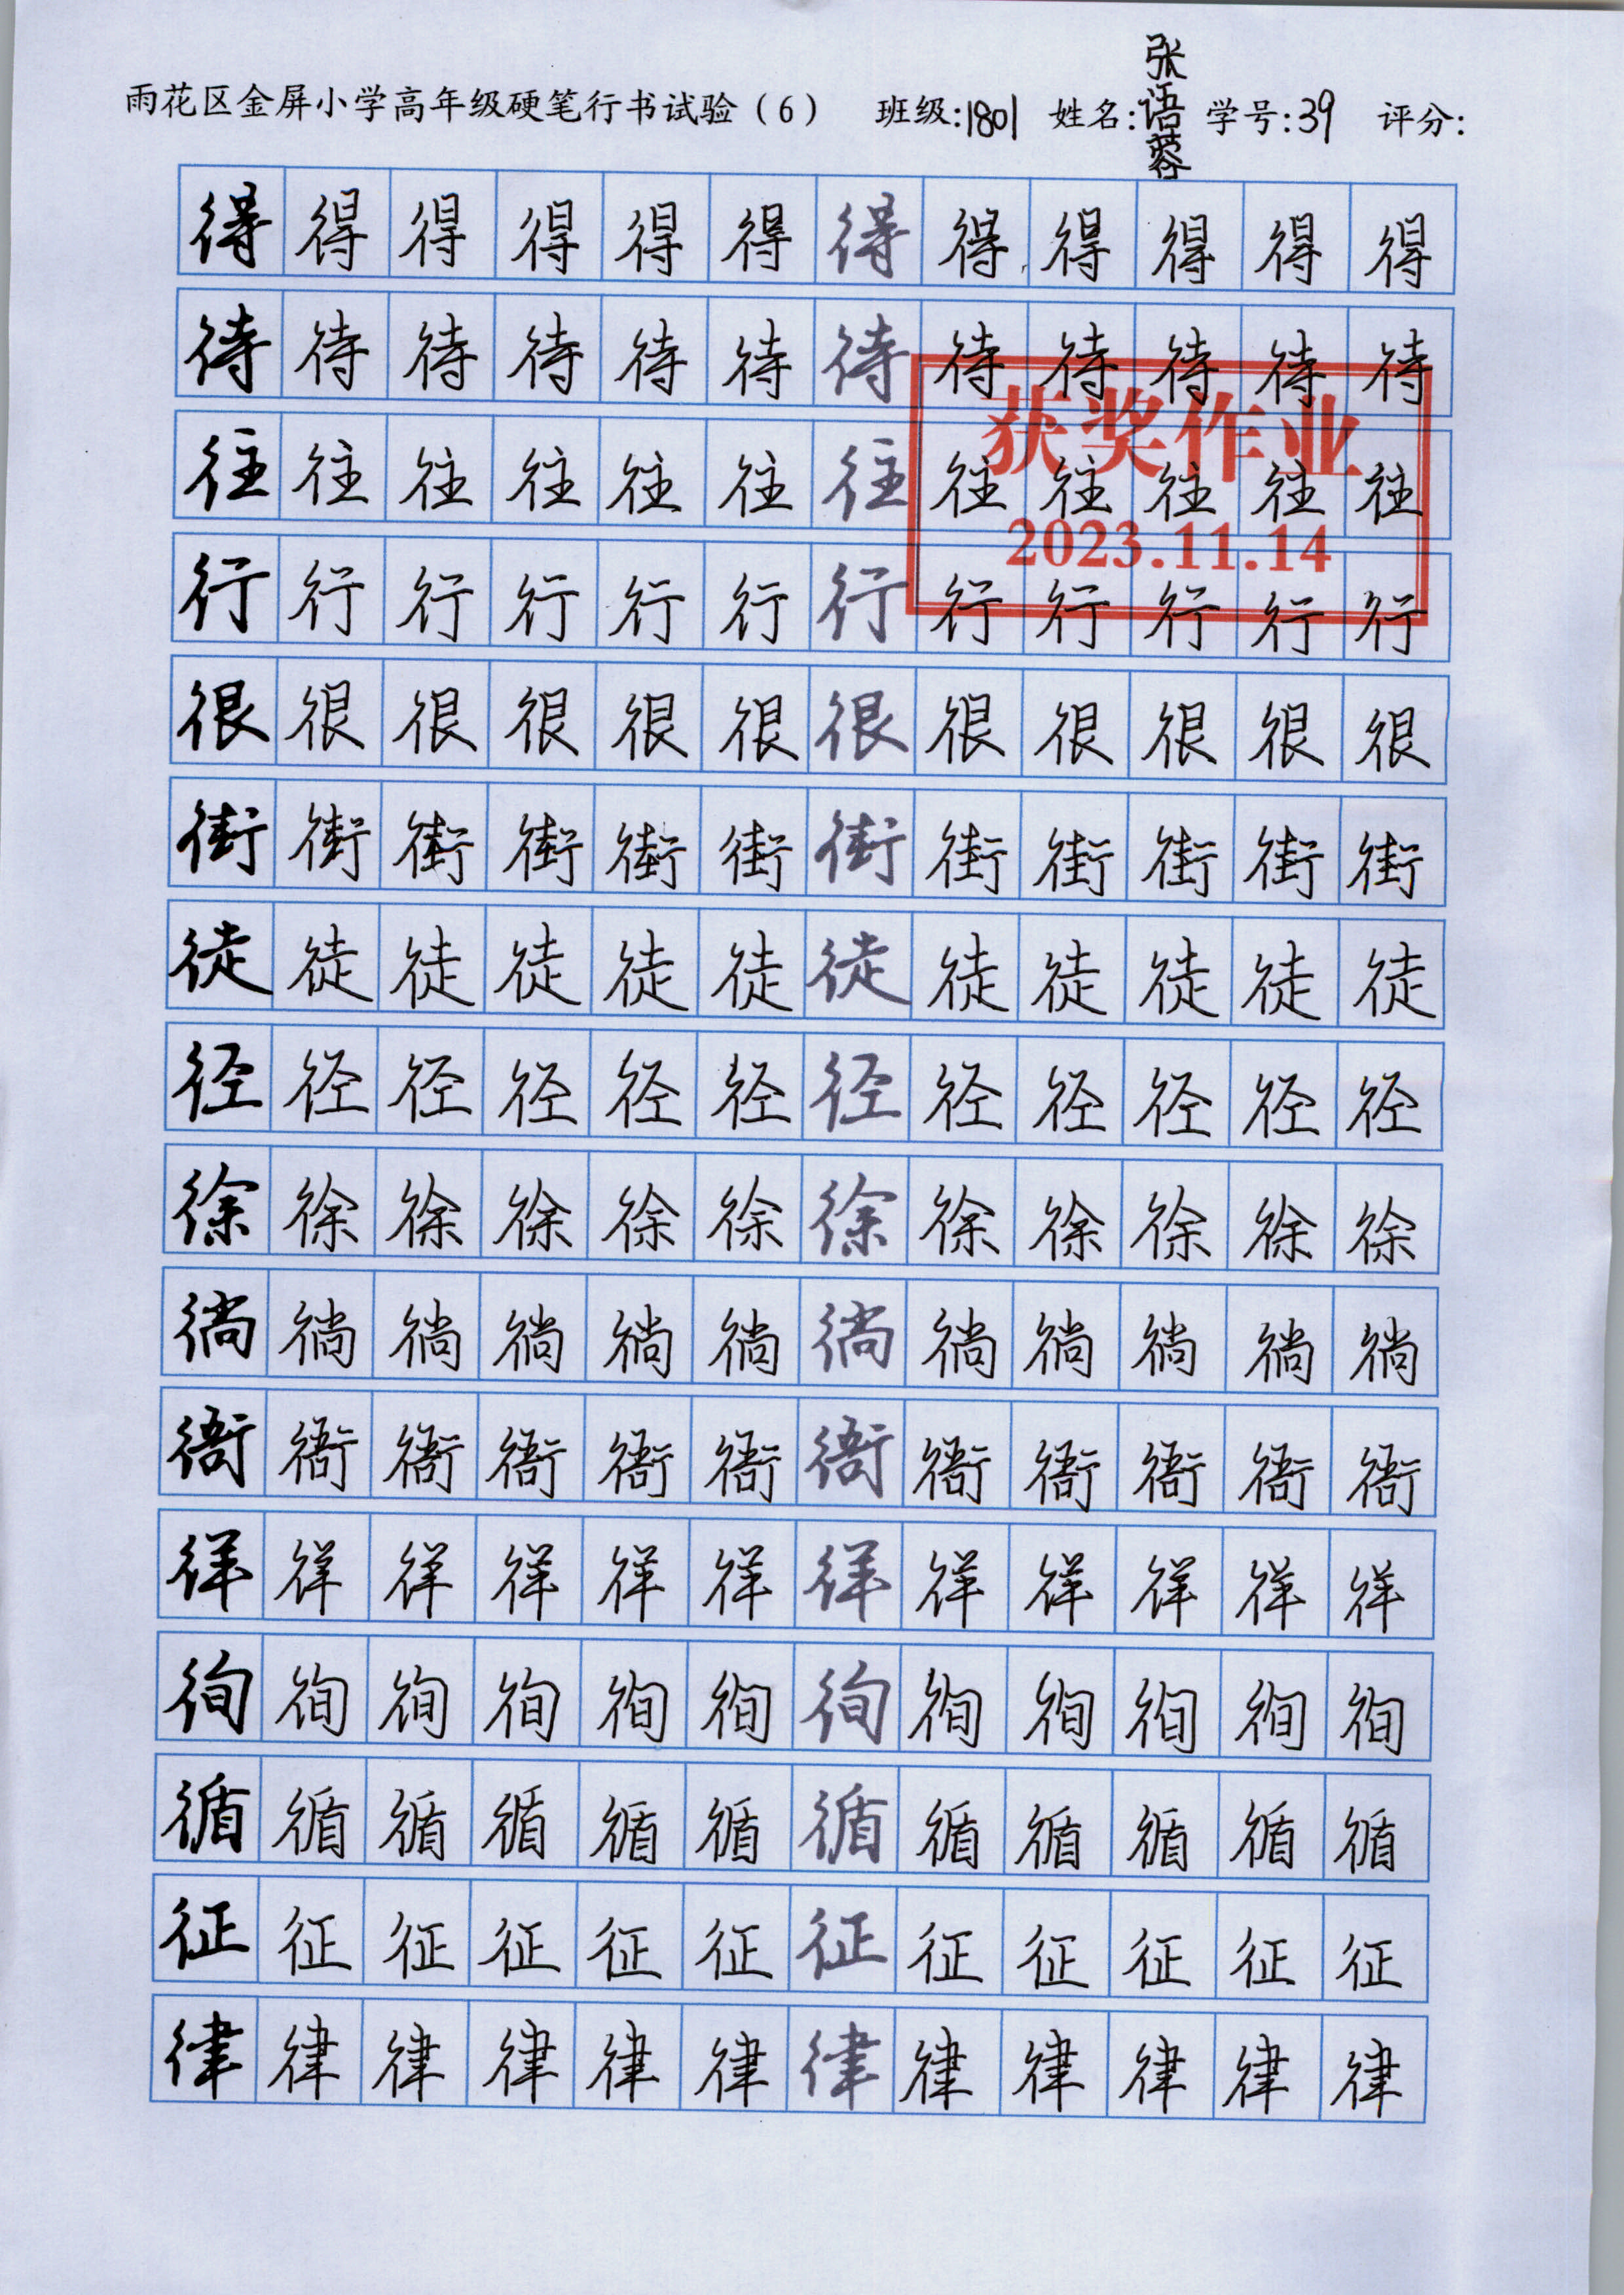 雨花区金屏小学高年级硬笔行书试验（6） 班级:1801 姓名:张语蓉 学号:39 评分:
得得得得得得得得得得得得
待待待待待待待待待待待待
获奖作业
往往往往往往往往往往往往
2023.11.14
行行行行行行行行行行行行
很很很很很很很很很很很很
街街街街街街街街街街街街
徒徒徒徒徒徒徒徒徒徒徒徒
径径径径径径径径径径径径
徐徐徐徐徐徐徐徐徐徐徐徐
徜徜徜徜徜徜徜徜徜徜徜徜
衙衙衙衙衙衙衙衙衙衙衙衙
徉徉徉徉徉徉徉徉徉徉徉徉
徇徇徇徇徇徇徇徇徇徇徇徇
循循循循循循循循循循循循
征征征征征征征征征征征征
律律律律律律律律律律律律